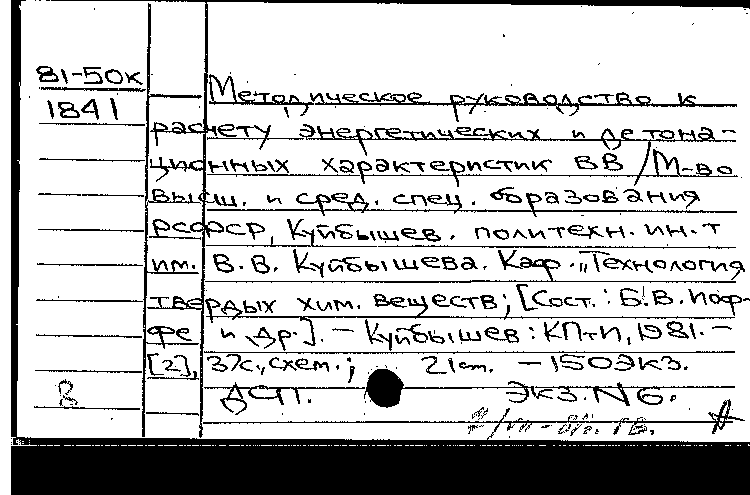 81-50к
1841
Методическое руководство к
расчету энергетических и детона-
ционных характеристик ВВ /М-во
высш. и сред. спец. образования
РСФСР, Куйбышев. политехн. ин.т
им. В.В. Куйбышева. Каф. „Технология
твердых хим. веществ; [Сост.: Б.В. Иоф-
фе и др.]. – Куйбышев: КПтИ, 1981. –
[2], 37с., схем.; 21см. – 150экз.
8 ДСП. Экз. N6.